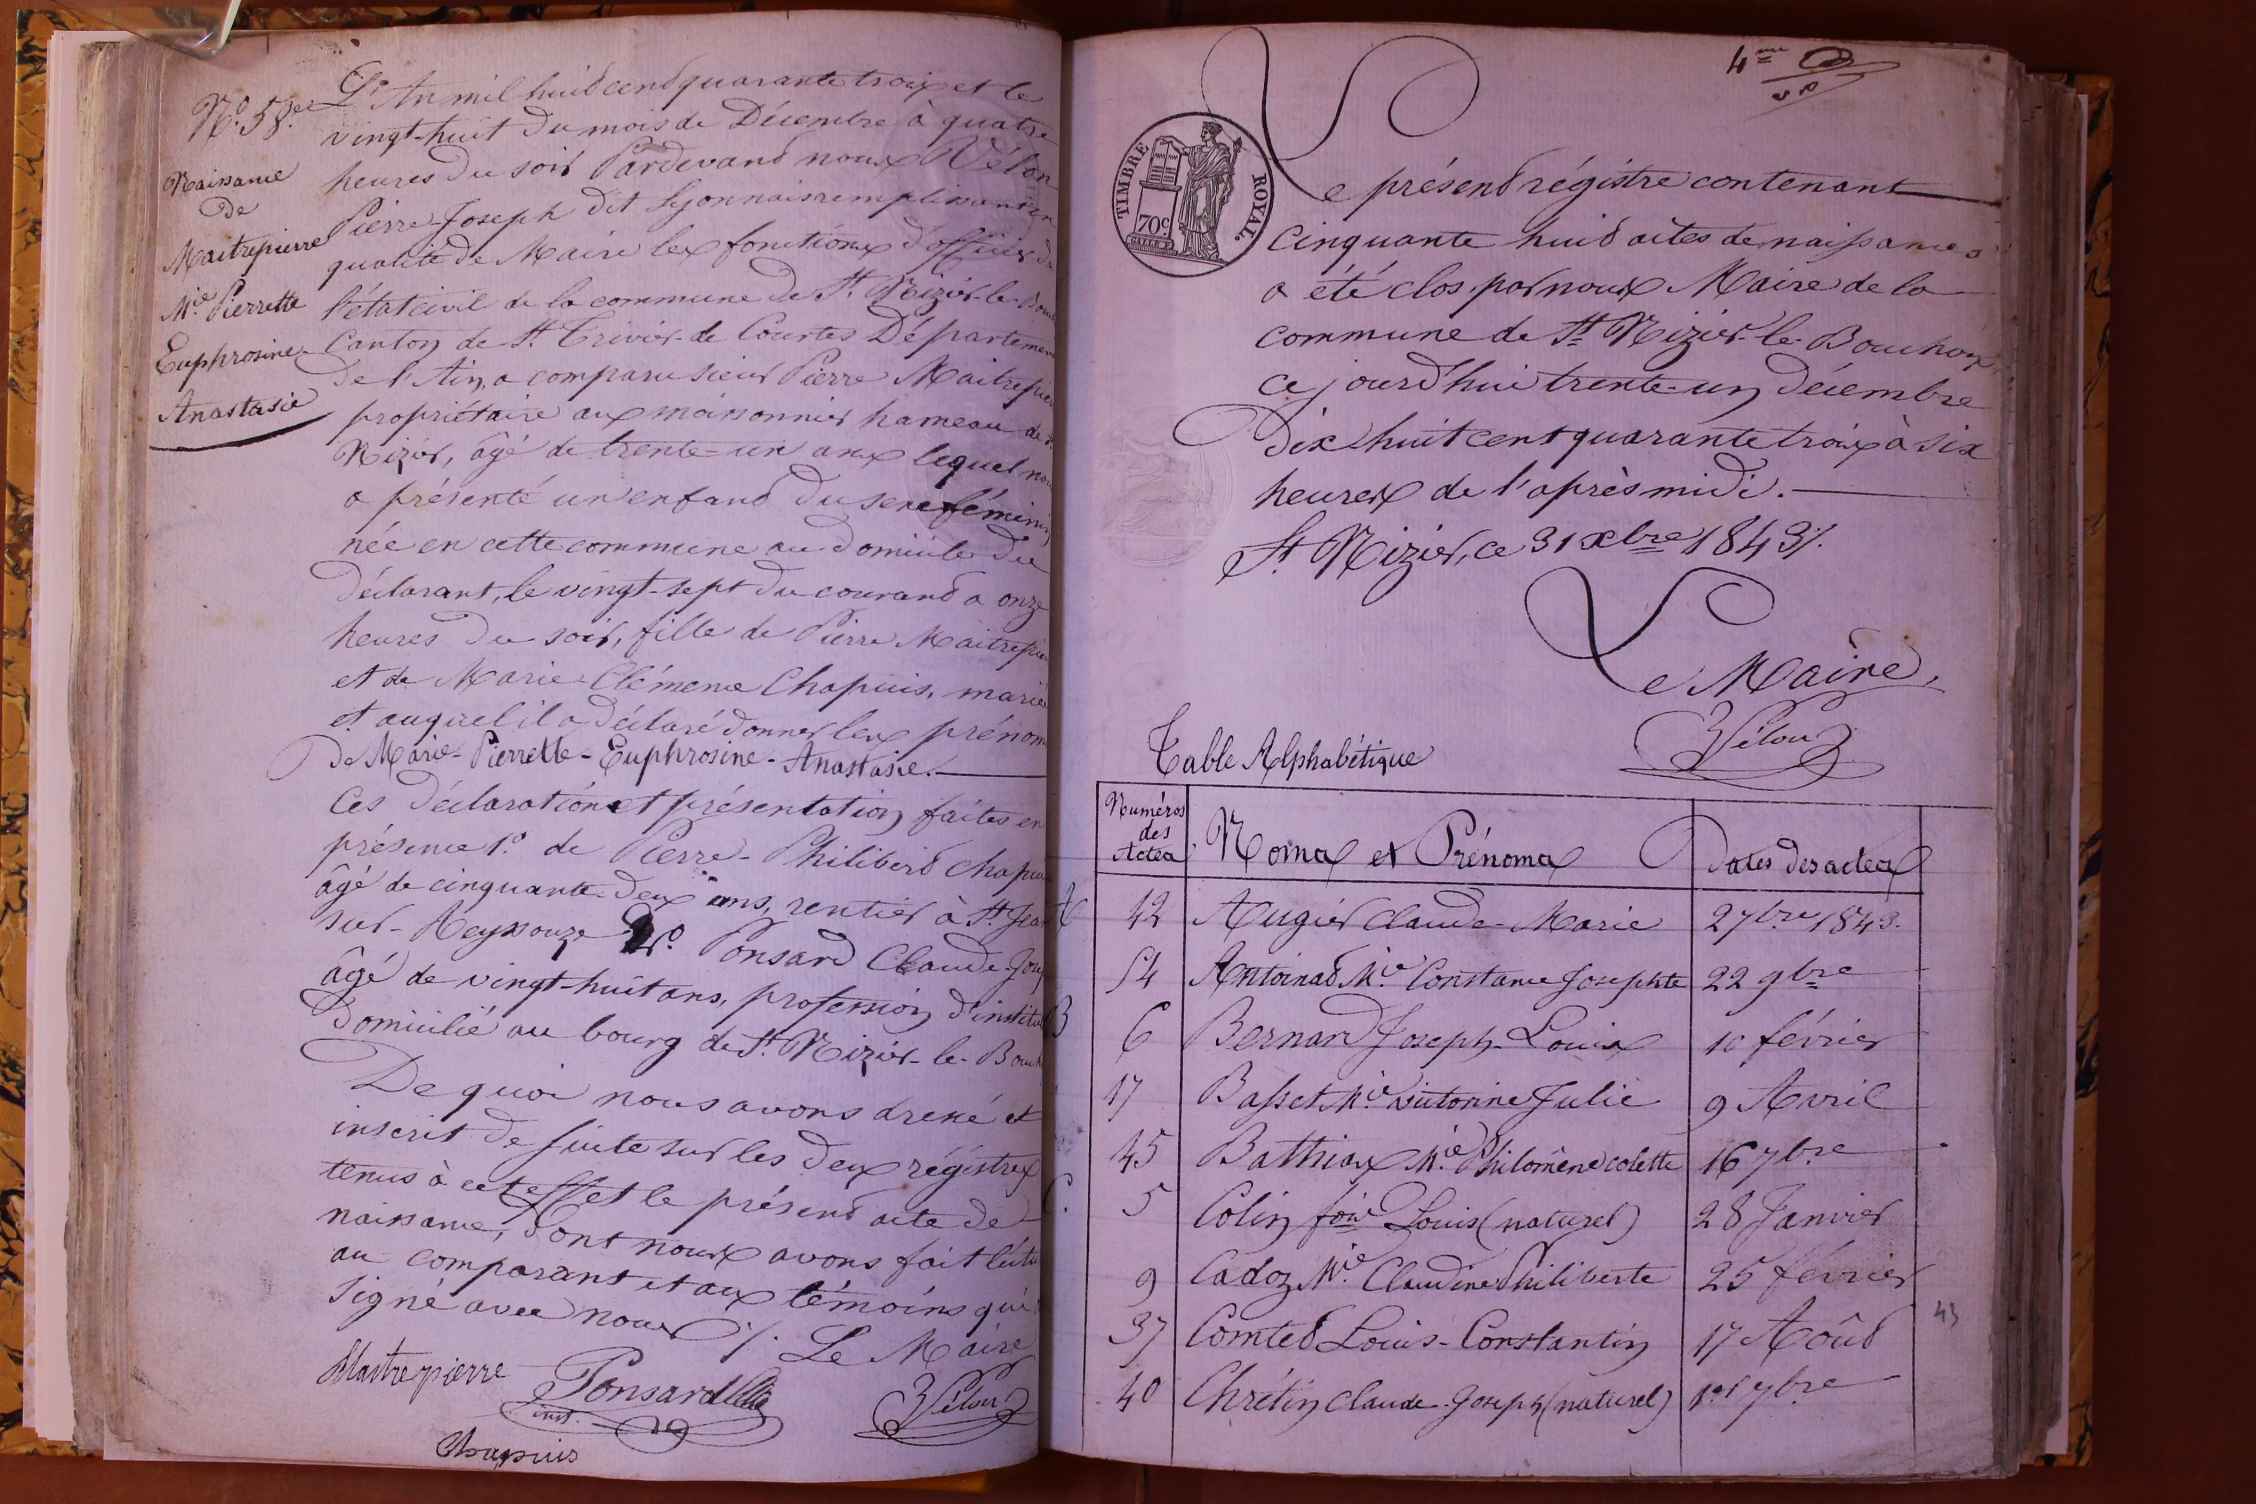 N.° 58.e
Naissance
de
Maitrepierre
M.ie Pierrette
Euphrosine
Anastasie
L'An mil huit cent quarante trois et le
vingt-huit du mois de Décembre à quatre
heures du soir Pardevant nous Vélon
Pierre-Joseph dit Lyonnais remplissant en
qualité de Maire les fonctions d'officier de
l'état civil de la commune de St. Nizier-le-Bouc
Canton de St. Trivier-de Courtes Département
de l'Ain, a comparu sieur Pierre Maitrepier
propriétaire aux moissonnier hameau de St.
Nizier, âgé de trente-un ans lequel nou
a présenté un enfant du sexe féminin
née en cette commune au domicile du
déclarant, le vingt-sept du courant a onze
heures du soir, fille de Pierre Maitrepier
et de Marie Clémence Chapuis, mariés
et auquel il a déclaré donner les prénoms
de Marie-Pierrette-Euphrosine-Anastasie.
Ces déclaration et présentation faites en
présence 1.° de Pierre-Philibert Chapuis
âgé de cinquante-deux ans, rentier à St. Jean
sur-Reyssouze 2.° Ponsard Claude-Josep
âgé de vingt-huit ans, profession d'institu
domicilié au bourg de St. Nizier-le-Bouch
De quoi nous avons dressé et
inscrit de suite sur les deux régistres
tenus à cet effet le présent acte de
naissance, dont nous avons fait lectu
au comparant et aux témoins qui
signé avec nous ./. Le Maire
Maitrepierre Ponsard Vélon
inst.
Chapuis
4me
TIMBRE ROYAL.
70c.
Le présent régistre contenant
cinquante huit actes de naissances
a été clos par nous Maire de la
commune de St Nizier-le-Bouchoux
ce jourd'hui trente-un décembre
dix huit cent quarante trois à six
heures de l'après midi.
St. Nizier, ce 31 xbre 1843 ./.
Le Maire,
Vélon
Table Alphabétique
Numéros des Actes Noms et Prénoms Dates des actes
A 42 Augier Claude-Marie 2 7bre 1843.
54 Antoinat M.ie Constance Josephte 22 9bre
B 6 Bernard Joseph-Louis 10 février
17 Basset M.ie Victorine Julie 9 Avril
45 Bathiax M.ie Philomène colette 16 7bre
C. 5 Colin fois Louis (naturel) 28 Janvier
9 Cadoz M.ie Claudine Philiberte 25 février
37 Comted Louis-Constantin 17 Août
40 Chrétin Claude-Joseph (naturel) 1er 7bre
43